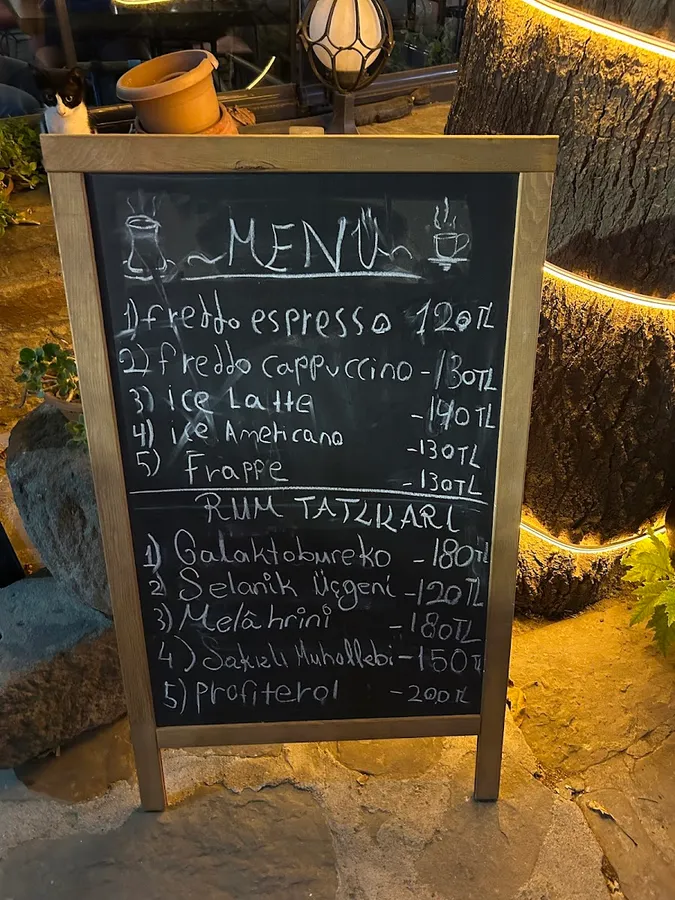 ~MENÜ~
1) freddo espresso 120TL
2) freddo cappuccino - 130TL
3) ice Latte - 140TL
4) ice Americano - 130TL
5) Frappe - 130TL
RUM TATLILARI
1) Galaktobureko - 180TL
2 Selanik Üçgeni - 120TL
3) Melahrini - 180TL
4) Sakızlı Muhallebi - 150TL
5) Profiterol - 200TL